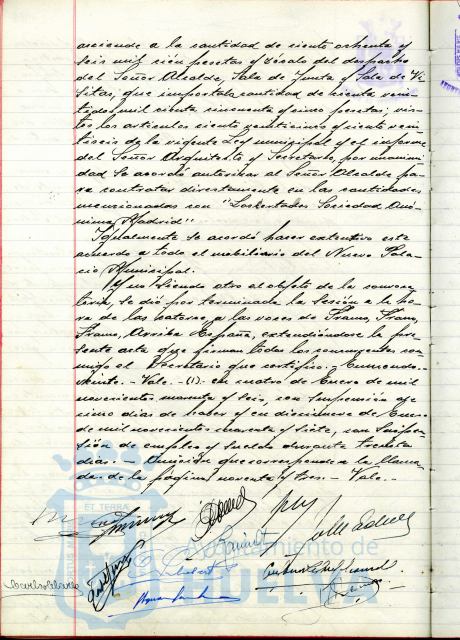 asciende a la cantidad de ciento ochenta y
seis mil cien pesetas y zócalo del despacho
del Señor Alcalde, Sala de Junta y Sala de Vi-
sitas, que importa la cantidad de treinta y
dos mil ciento cincuenta y cinco pesetas; vis-
tos los artículos ciento veinticinco y ciento vein-
tiseis de la vigente Ley municipal y el informe
del Señor Arquitecto y Secretario, por unanimi-
dad se acordó autorizar al Señor Alcalde pa-
ra contratar directamente en las cantidades
mencionadas con "Loskertales Sociedad Anó-
nima Madrid"
Igualmente se acordó hacer extensivo este
acuerdo a todo el mobiliario del Nuevo Pala-
cio Municipal.
Y no siendo otro el objeto de la convoca-
toria, se dió por terminada la sesión a la ho-
ra de las catorce, a las voces de Franco, Franco,
Franco, Arriba España, extendiéndose la pre-
sente acta que firman todos los concurrentes con-
migo el Secretario que certifico.- Enmendado.-
Vale.- (1). en cuatro de Enero de mil
novecientos cuarenta y seis, con suspensión de
cinco dias de haber y en diecinueve de Enero
de mil novecientos cuarenta y siete, con Suspen-
sión de empleo y sueldo durante treinta
dias.- Omisión que corresponde a la llama-
da de la página noventa y tres.- Vale.-
ET TERRAE
Ayuntamiento de
HUELVA